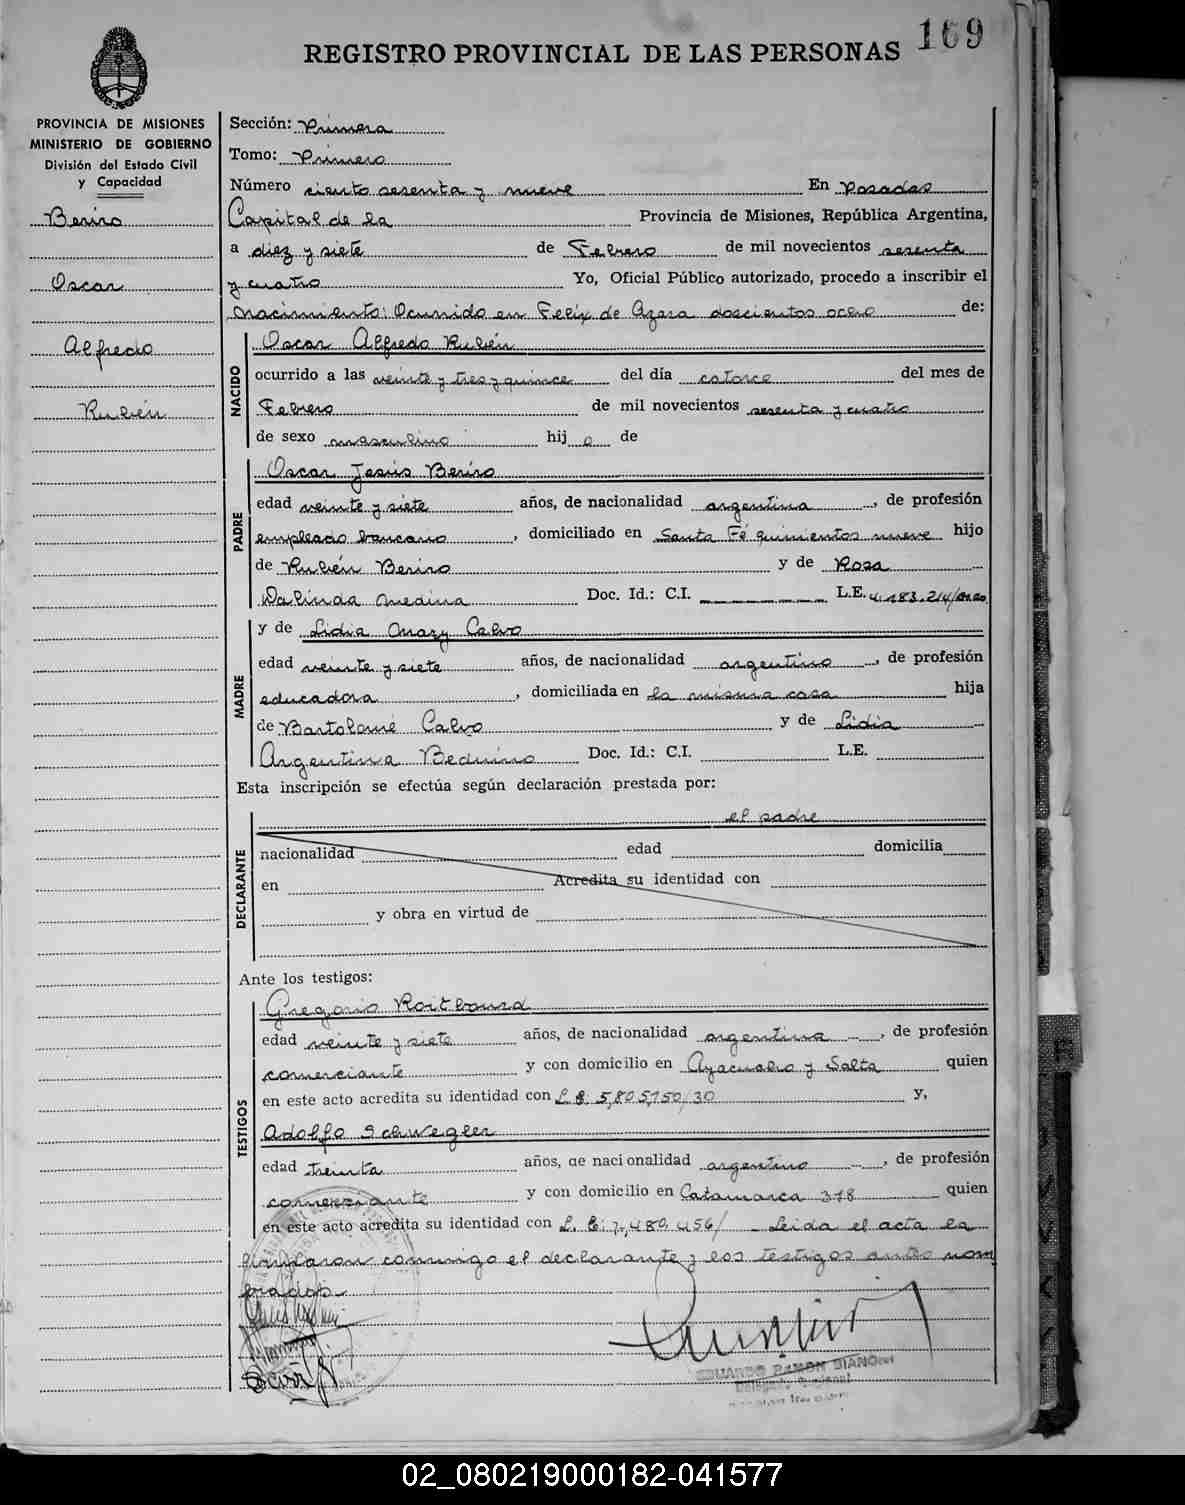 169
REGISTRO PROVINCIAL DE LAS PERSONAS
PROVINCIA DE MISIONES
MINISTERIO DE GOBIERNO
División del Estado Civil
y Capacidad
Beniro
Oscar
Alfredo
Rubén
Sección: Primera
Tomo: Primero
Número ciento sesenta y nueve En Posadas
Capital de la Provincia de Misiones, República Argentina,
a diez y siete de Febrero de mil novecientos sesenta
y cuatro Yo, Oficial Público autorizado, procedo a inscribir el
nacimiento: Ocurrido en Felix de Azara doscientos ocho de:
NACIDO
Oscar Alfredo Rubén
ocurrido a las veinte y tres y quince del día catorce del mes de
Febrero de mil novecientos sesenta y cuatro
de sexo masculino hij o de
PADRE
Oscar Jesús Beniro
edad veinte y siete años, de nacionalidad argentina, de profesión
empleado bancario, domiciliado en Santa Fé quinientos nueve hijo
de Rubén Beniro y de Rosa
Dalinda Medina Doc. Id.: C.I. L.E. 4.183.214/
MADRE
y de Lidia Mary Calvo
edad veinte y siete años, de nacionalidad argentino, de profesión
educadora, domiciliada en la misma casa hija
de Bartolomé Calvo y de Lidia
Argentina Doc. Id.: C.I. L.E.
Esta inscripción se efectúa según declaración prestada por:
DECLARANTE
el padre
nacionalidad edad domicilia
en Acredita su identidad con
y obra en virtud de
Ante los testigos:
TESTIGOS
Gregorio
edad veinte y siete años, de nacionalidad argentina, de profesión
comerciante y con domicilio en Ayacucho y Salta quien
en este acto acredita su identidad con L.E. 5,805,750/30 y,
Adolfo Schwegler
edad treinta años, de nacionalidad argentino, de profesión
comerciante y con domicilio en Catamarca 378 quien
en este acto acredita su identidad con L.E: 7,480.456/ - Leida el acta la
firmaron conmigo el declarante y los testigos antes nom
brados.
EDUARDO RAMON
02_080219000182-041577